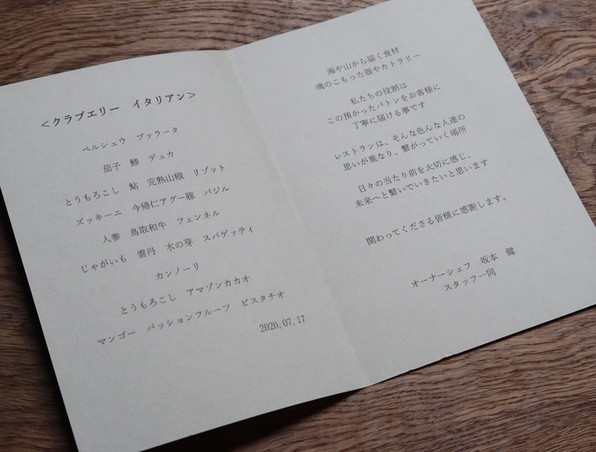 <クラブエリー　イタリアン>
ペルシュウ　ブッラータ
茄子　鯵　デュカ
とうもろこし　鮎　完熟山椒　リゾット
ズッキーニ　今帰仁アグー豚　バジル
人参　鳥取和牛　フェンネル
じゃがいも　雲丹　木の芽　スパゲッティ
カンノーリ
とうもろこし　アマゾンカカオ
マンゴー　パッションフルーツ　ピスタチオ
2020.07.17
海や山から届く食材
魂のこもった器やカトラリー
私たちの役割は
この預かったバトンをお客様に
丁寧に届ける事です
レストランは、そんな色んな人達の
思いが重なり、繋がっていく場所
日々の当たり前を大切に感じ、
未来へと繋いでいきたいと思います
関わってくださる皆様に感謝します。
オーナーシェフ　坂本　健
スタッフ一同